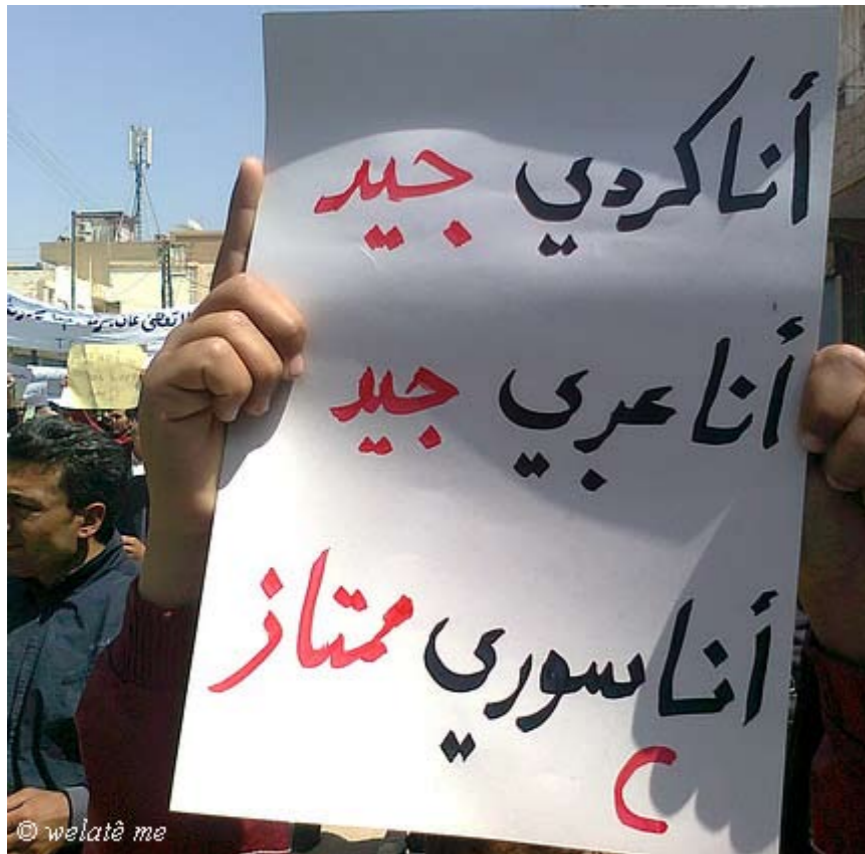 أنا كردي جيد
أنا عربي جيد
أنا سوري ممتاز
© welatê me